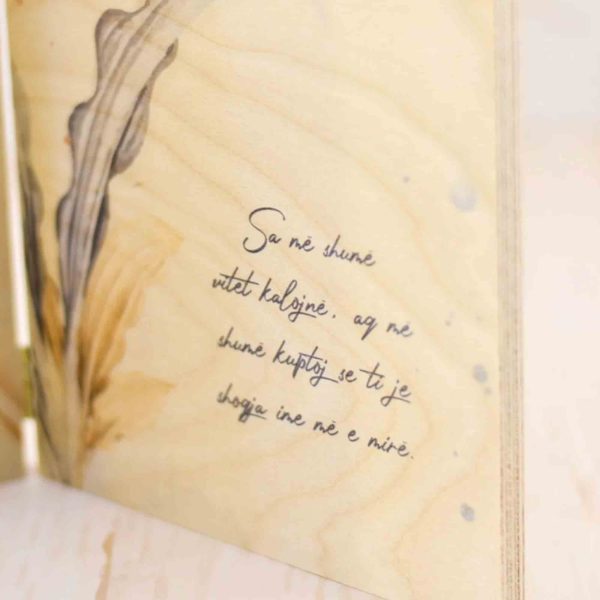 Sa më shumë
vitet kalojnë, aq më
shumë kuptoj se ti je
shoqja ime më e mirë.